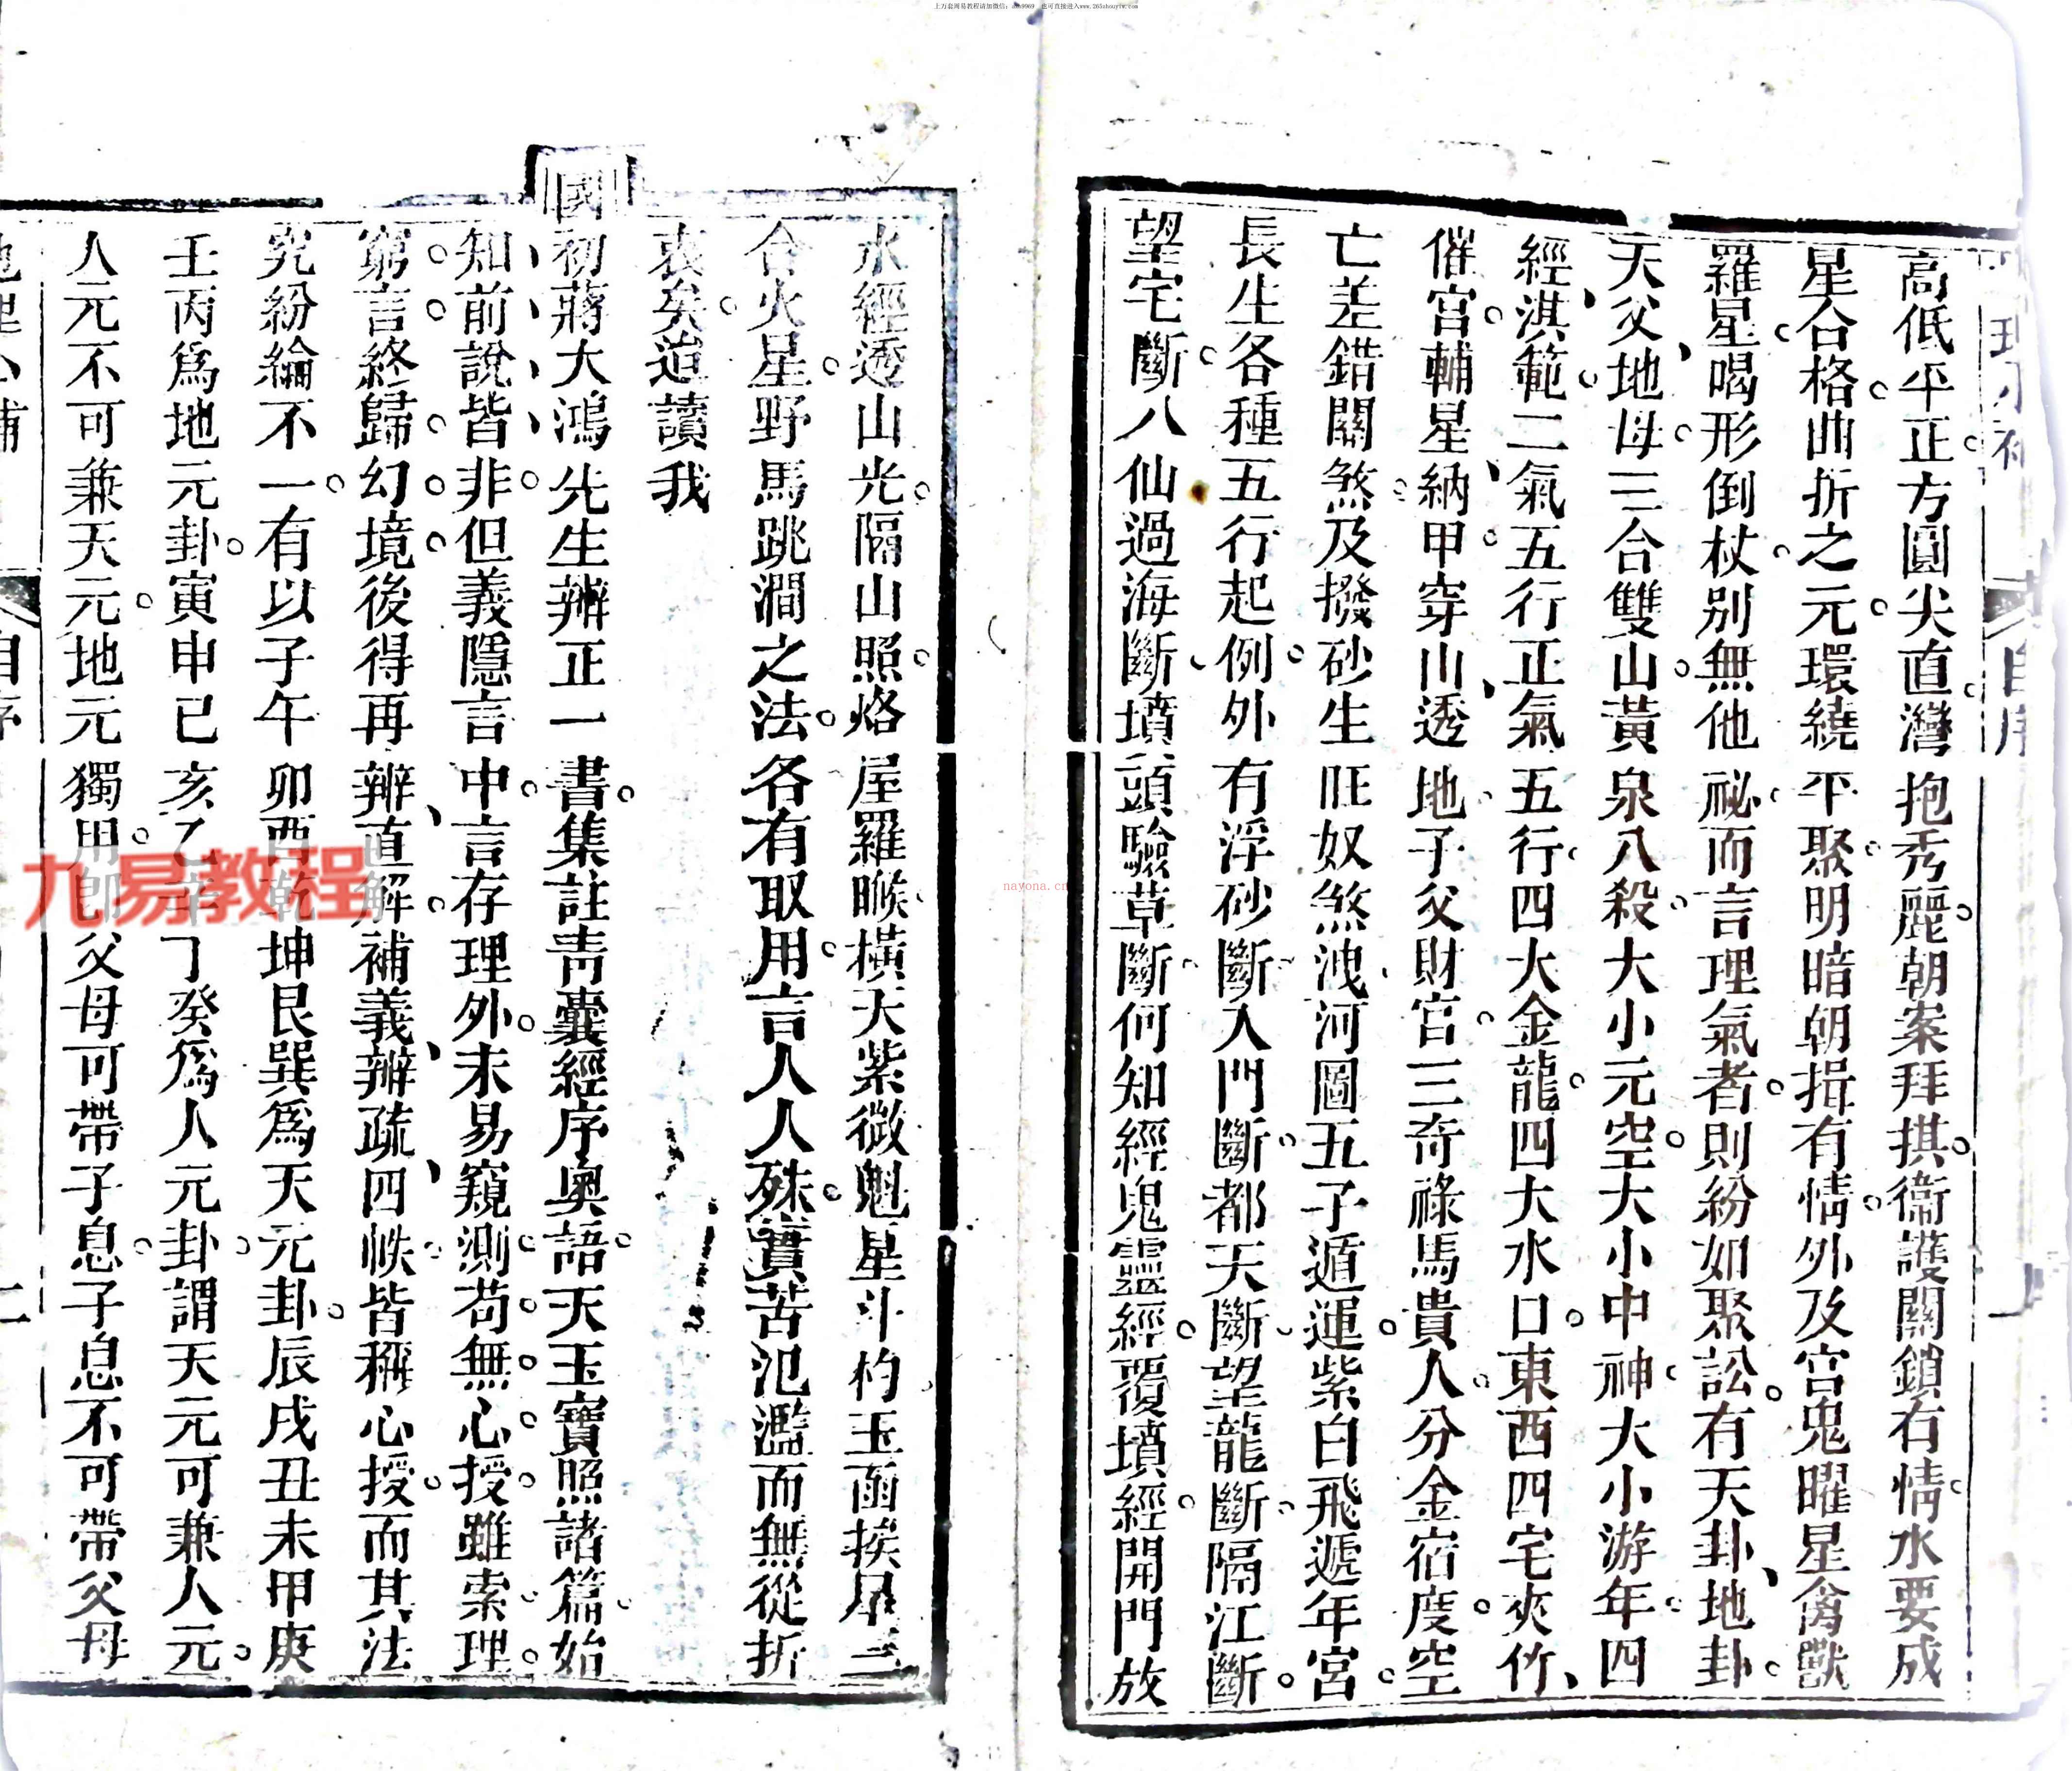 上万套周易教程请加微信：
也可直接进入www.
高低平正方圓尖直灣抱秀麗朝案拜拱衞護關鎖有情水要成
星合格曲折之元環繞平聚明暗朝揖有情外及宫鬼曜星禽獸
羅星喝形倒杖别無他祕而言理氣者則紛如聚訟有天卦地卦
天父地母三合雙山黃泉八殺大小元空大小中神大小游年四
經淇範二氣五行正氣五行四大金龍四大水口東西四宅夾竹
催宫輔星納甲穿山透地子父財官三奇祿馬貴人分金宿度空
亡差錯關煞及撥砂生旺奴煞洩河圖五子遁運紫白飛遞年宮
長生各種五行起例外有浮砂斷入門斷都天斷望龍斷隔江斷
望宅斷八仙過海斷墳頭驗草斷何知經鬼靈經覆墳經開門放
水經透山光隔山照烙屋羅睺橫天紫微魁星斗杓玉函挨星三
合火星野馬跳澗之法各有取用言人人殊實苦氾濫而無從折
衷矣迨讀我
國初蔣大鴻先生辨正一書集註青囊經序奧語天玉寶照諸篇始
知前說皆非但義隱言中言存理外未易窺測苟無心授雖索理
窮言終歸幻境後得再辨直解補義辨疏四帙皆稱心授而其法
究紛綸不一有以子午卯酉乾坤艮巽爲天元卦辰戌丑未甲庚
壬丙爲地元卦寅申巳亥乙辛丁癸爲人元卦謂天元可兼人元
人元不可兼天元地元獨用卽父母可帶子息子息不可帶父母
自序
二
自序
一
九易教程
nayona.cn